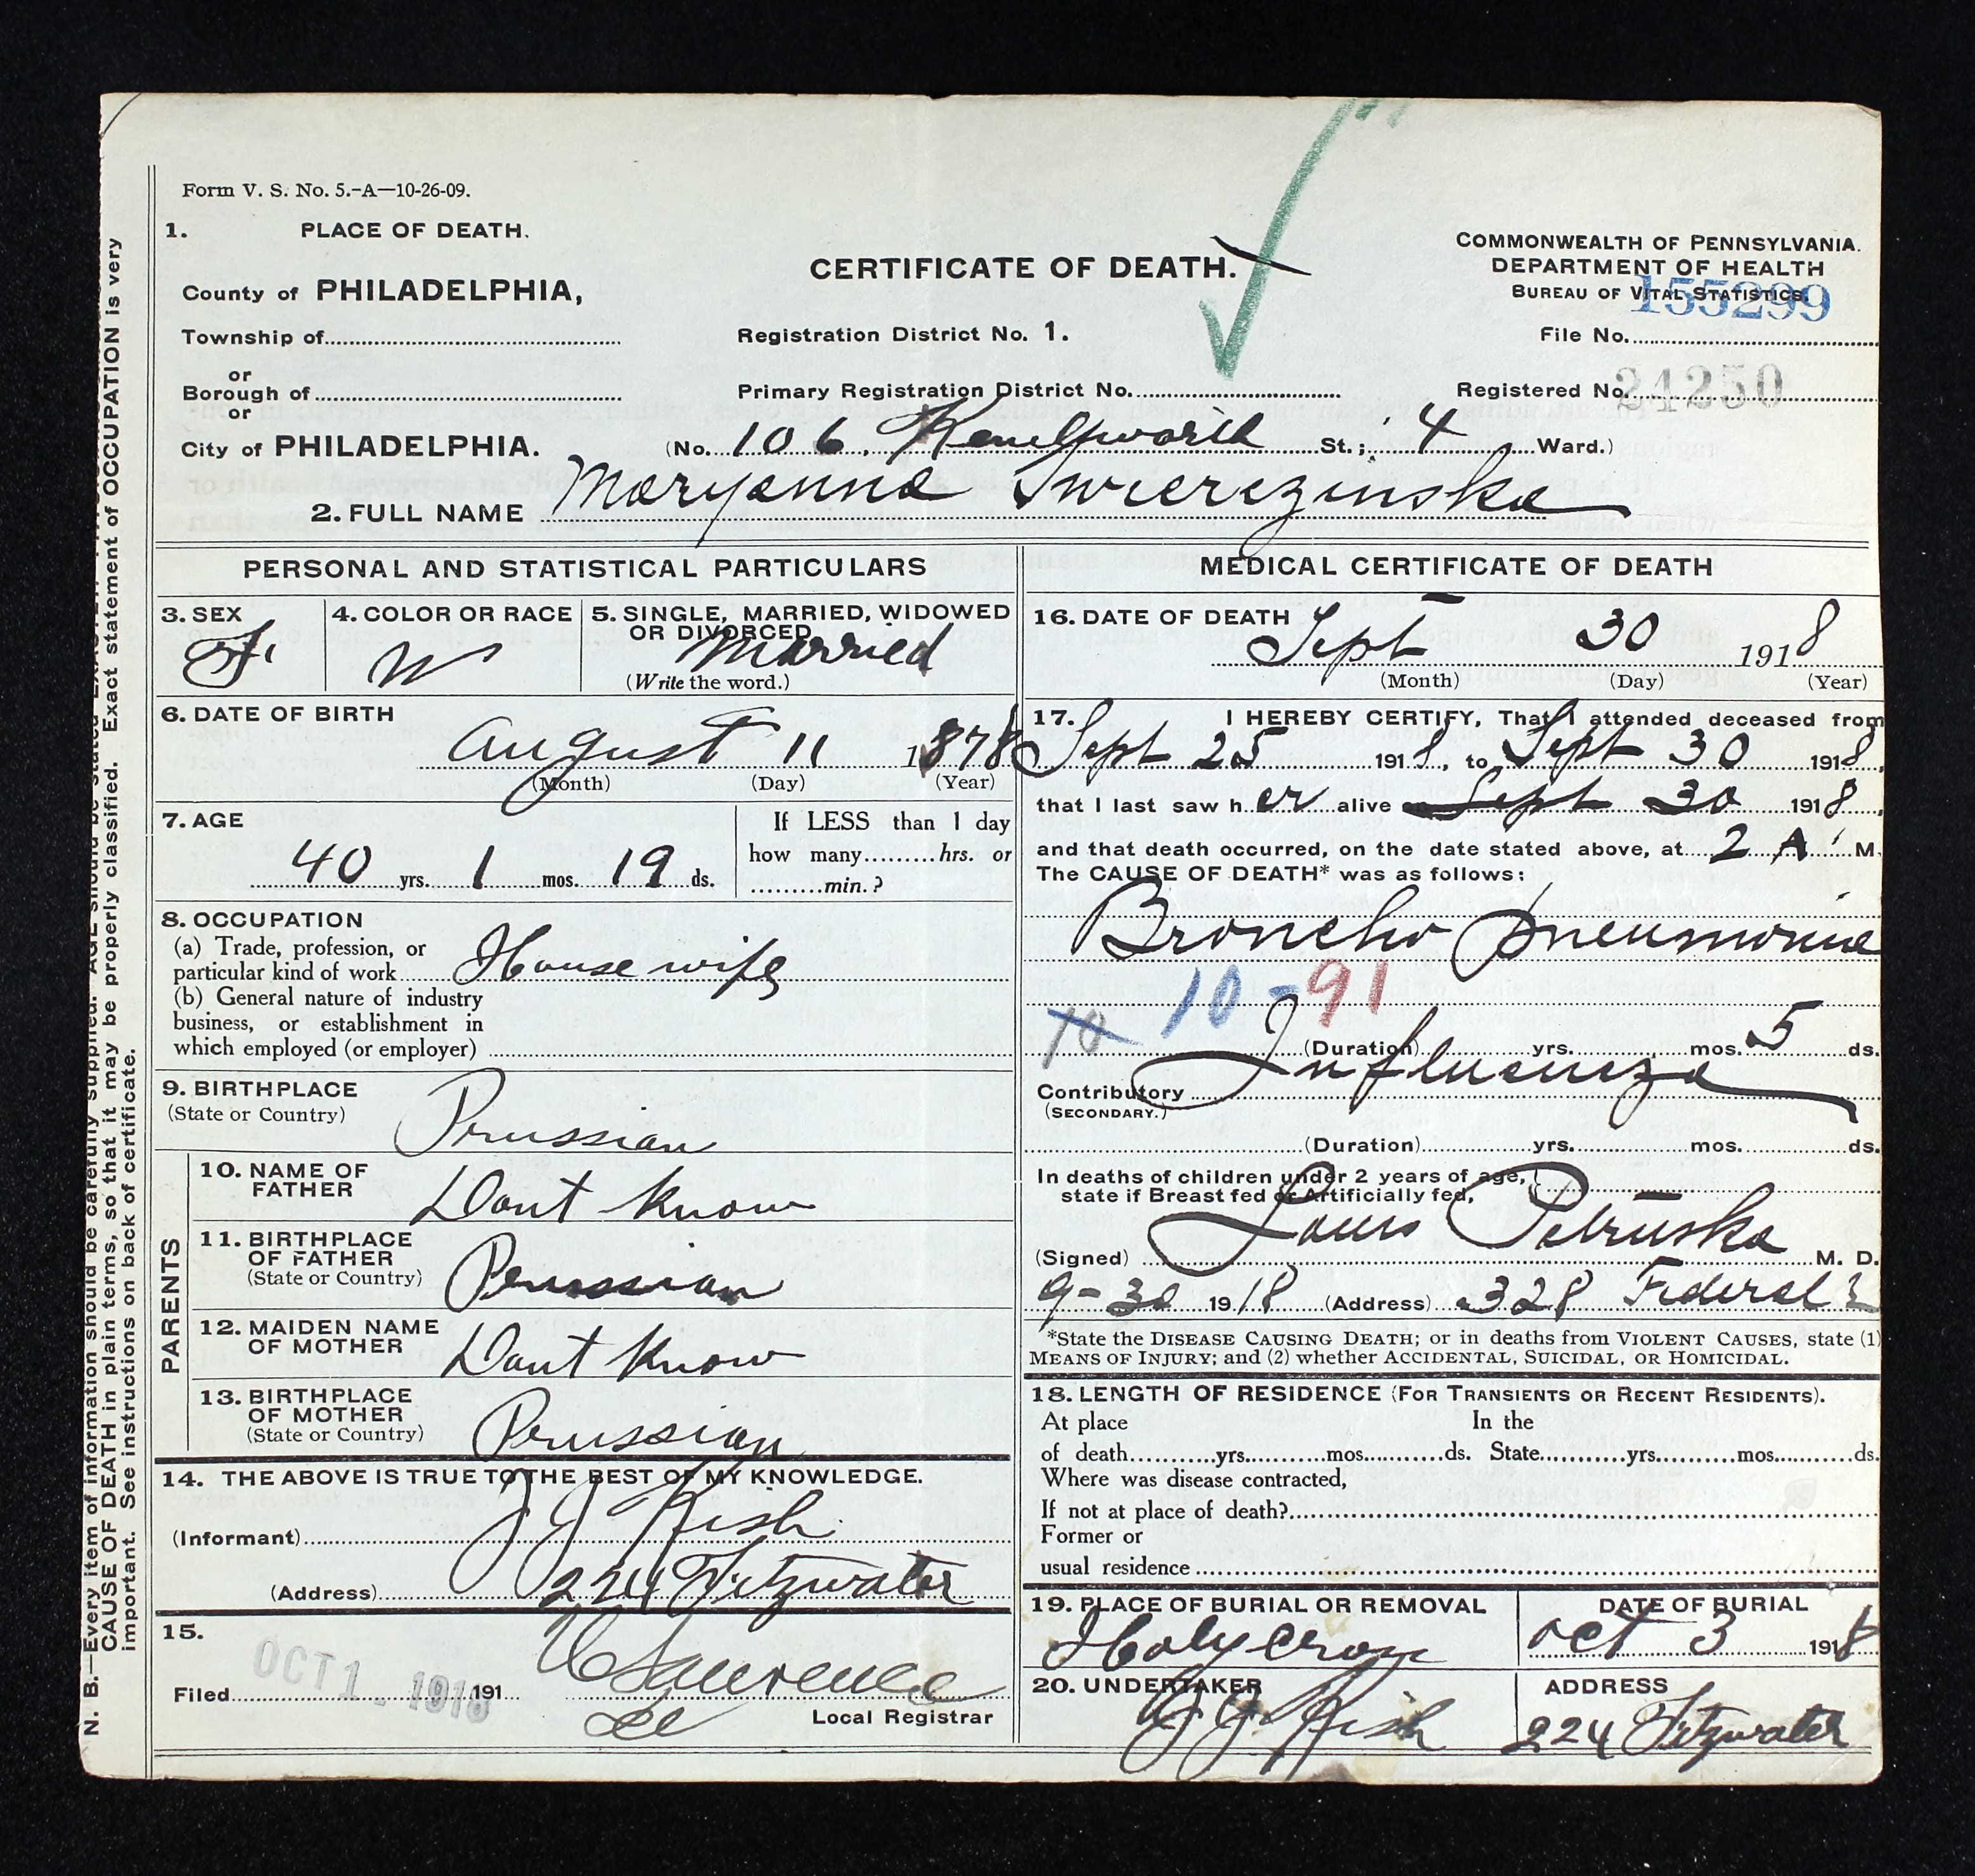 Form V. S. No. 5.-A—10-26-09.
1. PLACE OF DEATH.
County of PHILADELPHIA,
Township of
or
Borough of
or
City of PHILADELPHIA.
CERTIFICATE OF DEATH.
Registration District No. 1.
Primary Registration District No.
(No. 106, Kenilworth St.; 4 Ward.)
COMMONWEALTH OF PENNSYLVANIA.
DEPARTMENT OF HEALTH
BUREAU OF VITAL STATISTICS.
155299
File No.
Registered No. 24250
2. FULL NAME Maryanna Swierezinska
PERSONAL AND STATISTICAL PARTICULARS
3. SEX
F.
4. COLOR OR RACE
W
5. SINGLE, MARRIED, WIDOWED
OR DIVORCED
Married
(Write the word.)
6. DATE OF BIRTH
August 11 1878
(Month) (Day) (Year)
7. AGE
40 yrs. 1 mos. 19 ds.
If LESS than 1 day
how many hrs. or
min.?
8. OCCUPATION
(a) Trade, profession, or
particular kind of work House wife
(b) General nature of industry
business, or establishment in
which employed (or employer)
9. BIRTHPLACE
(State or Country)
Prussian
PARENTS
10. NAME OF
FATHER
Dont know
11. BIRTHPLACE
OF FATHER
(State or Country)
Prussian
12. MAIDEN NAME
OF MOTHER
Dont know
13. BIRTHPLACE
OF MOTHER
(State or Country)
Prussian
14. THE ABOVE IS TRUE TO THE BEST OF MY KNOWLEDGE.
(Informant) J J Kish
(Address) 224 Fitzwater
15.
Filed OCT 1 - 1918 191
Local Registrar
MEDICAL CERTIFICATE OF DEATH
16. DATE OF DEATH
Sept 30 1918
(Month) (Day) (Year)
17. I HEREBY CERTIFY, That I attended deceased from
Sept 25 1918, to Sept 30 1918,
that I last saw her alive Sept 30 1918,
and that death occurred, on the date stated above, at 2 A. M.
The CAUSE OF DEATH* was as follows:
Broncho Pneumonia
10-91
10
(Duration) yrs. mos. 5 ds.
Contributory Influenza
(SECONDARY.)
(Duration) yrs. mos. ds.
In deaths of children under 2 years of age,
state if Breast fed or Artificially fed,
(Signed) Louis Petruska M. D.
9-30 1918 (Address) 328 Federal
*State the DISEASE CAUSING DEATH; or in deaths from VIOLENT CAUSES, state (1)
MEANS OF INJURY; and (2) whether ACCIDENTAL, SUICIDAL, OR HOMICIDAL.
18. LENGTH OF RESIDENCE (FOR TRANSIENTS OR RECENT RESIDENTS).
At place In the
of death yrs. mos. ds. State yrs. mos. ds.
Where was disease contracted,
If not at place of death?
Former or
usual residence
19. PLACE OF BURIAL OR REMOVAL
Holy Cross
DATE OF BURIAL
Oct 3 1918
20. UNDERTAKER
J J Kish
ADDRESS
224 Fitzwater
N. B.—Every item of information should be carefully supplied. AGE should be stated
CAUSE OF DEATH in plain terms, so that it may be properly classified. Exact statement of OCCUPATION is very
important. See instructions on back of certificate.